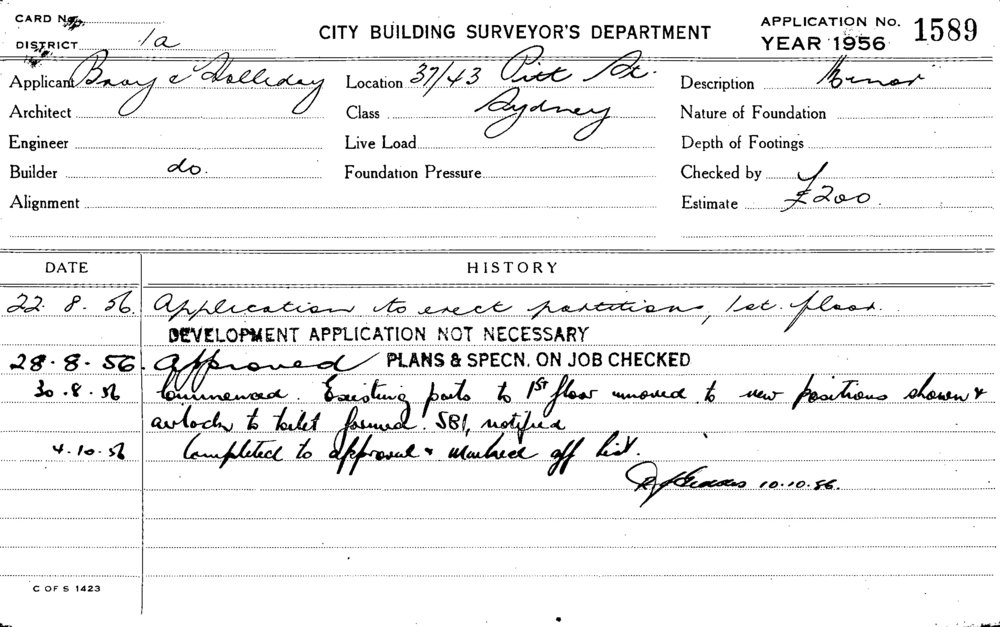 CARD No.
DISTRICT 1a
CITY BUILDING SURVEYOR'S DEPARTMENT
APPLICATION No. 1589
YEAR 1956
Applicant Bray & Holliday Location 37/43 Pitt St. Description Minor
Architect Class Sydney Nature of Foundation
Engineer Live Load Depth of Footings
Builder do. Foundation Pressure Checked by
Alignment Estimate £200.
DATE HISTORY
22.8.56. Application to erect partitions, 1st. floor.
DEVELOPMENT APPLICATION NOT NECESSARY
28.8.56. Approved PLANS & SPECN. ON JOB CHECKED
30.8.56 Commenced. Existing parts to 1ST floor removed to new positions shown &
airlock to toilet formed. SBI, notified
4.10.56 Completed to approval & marked off list.
10.10.56.
C OF S 1423